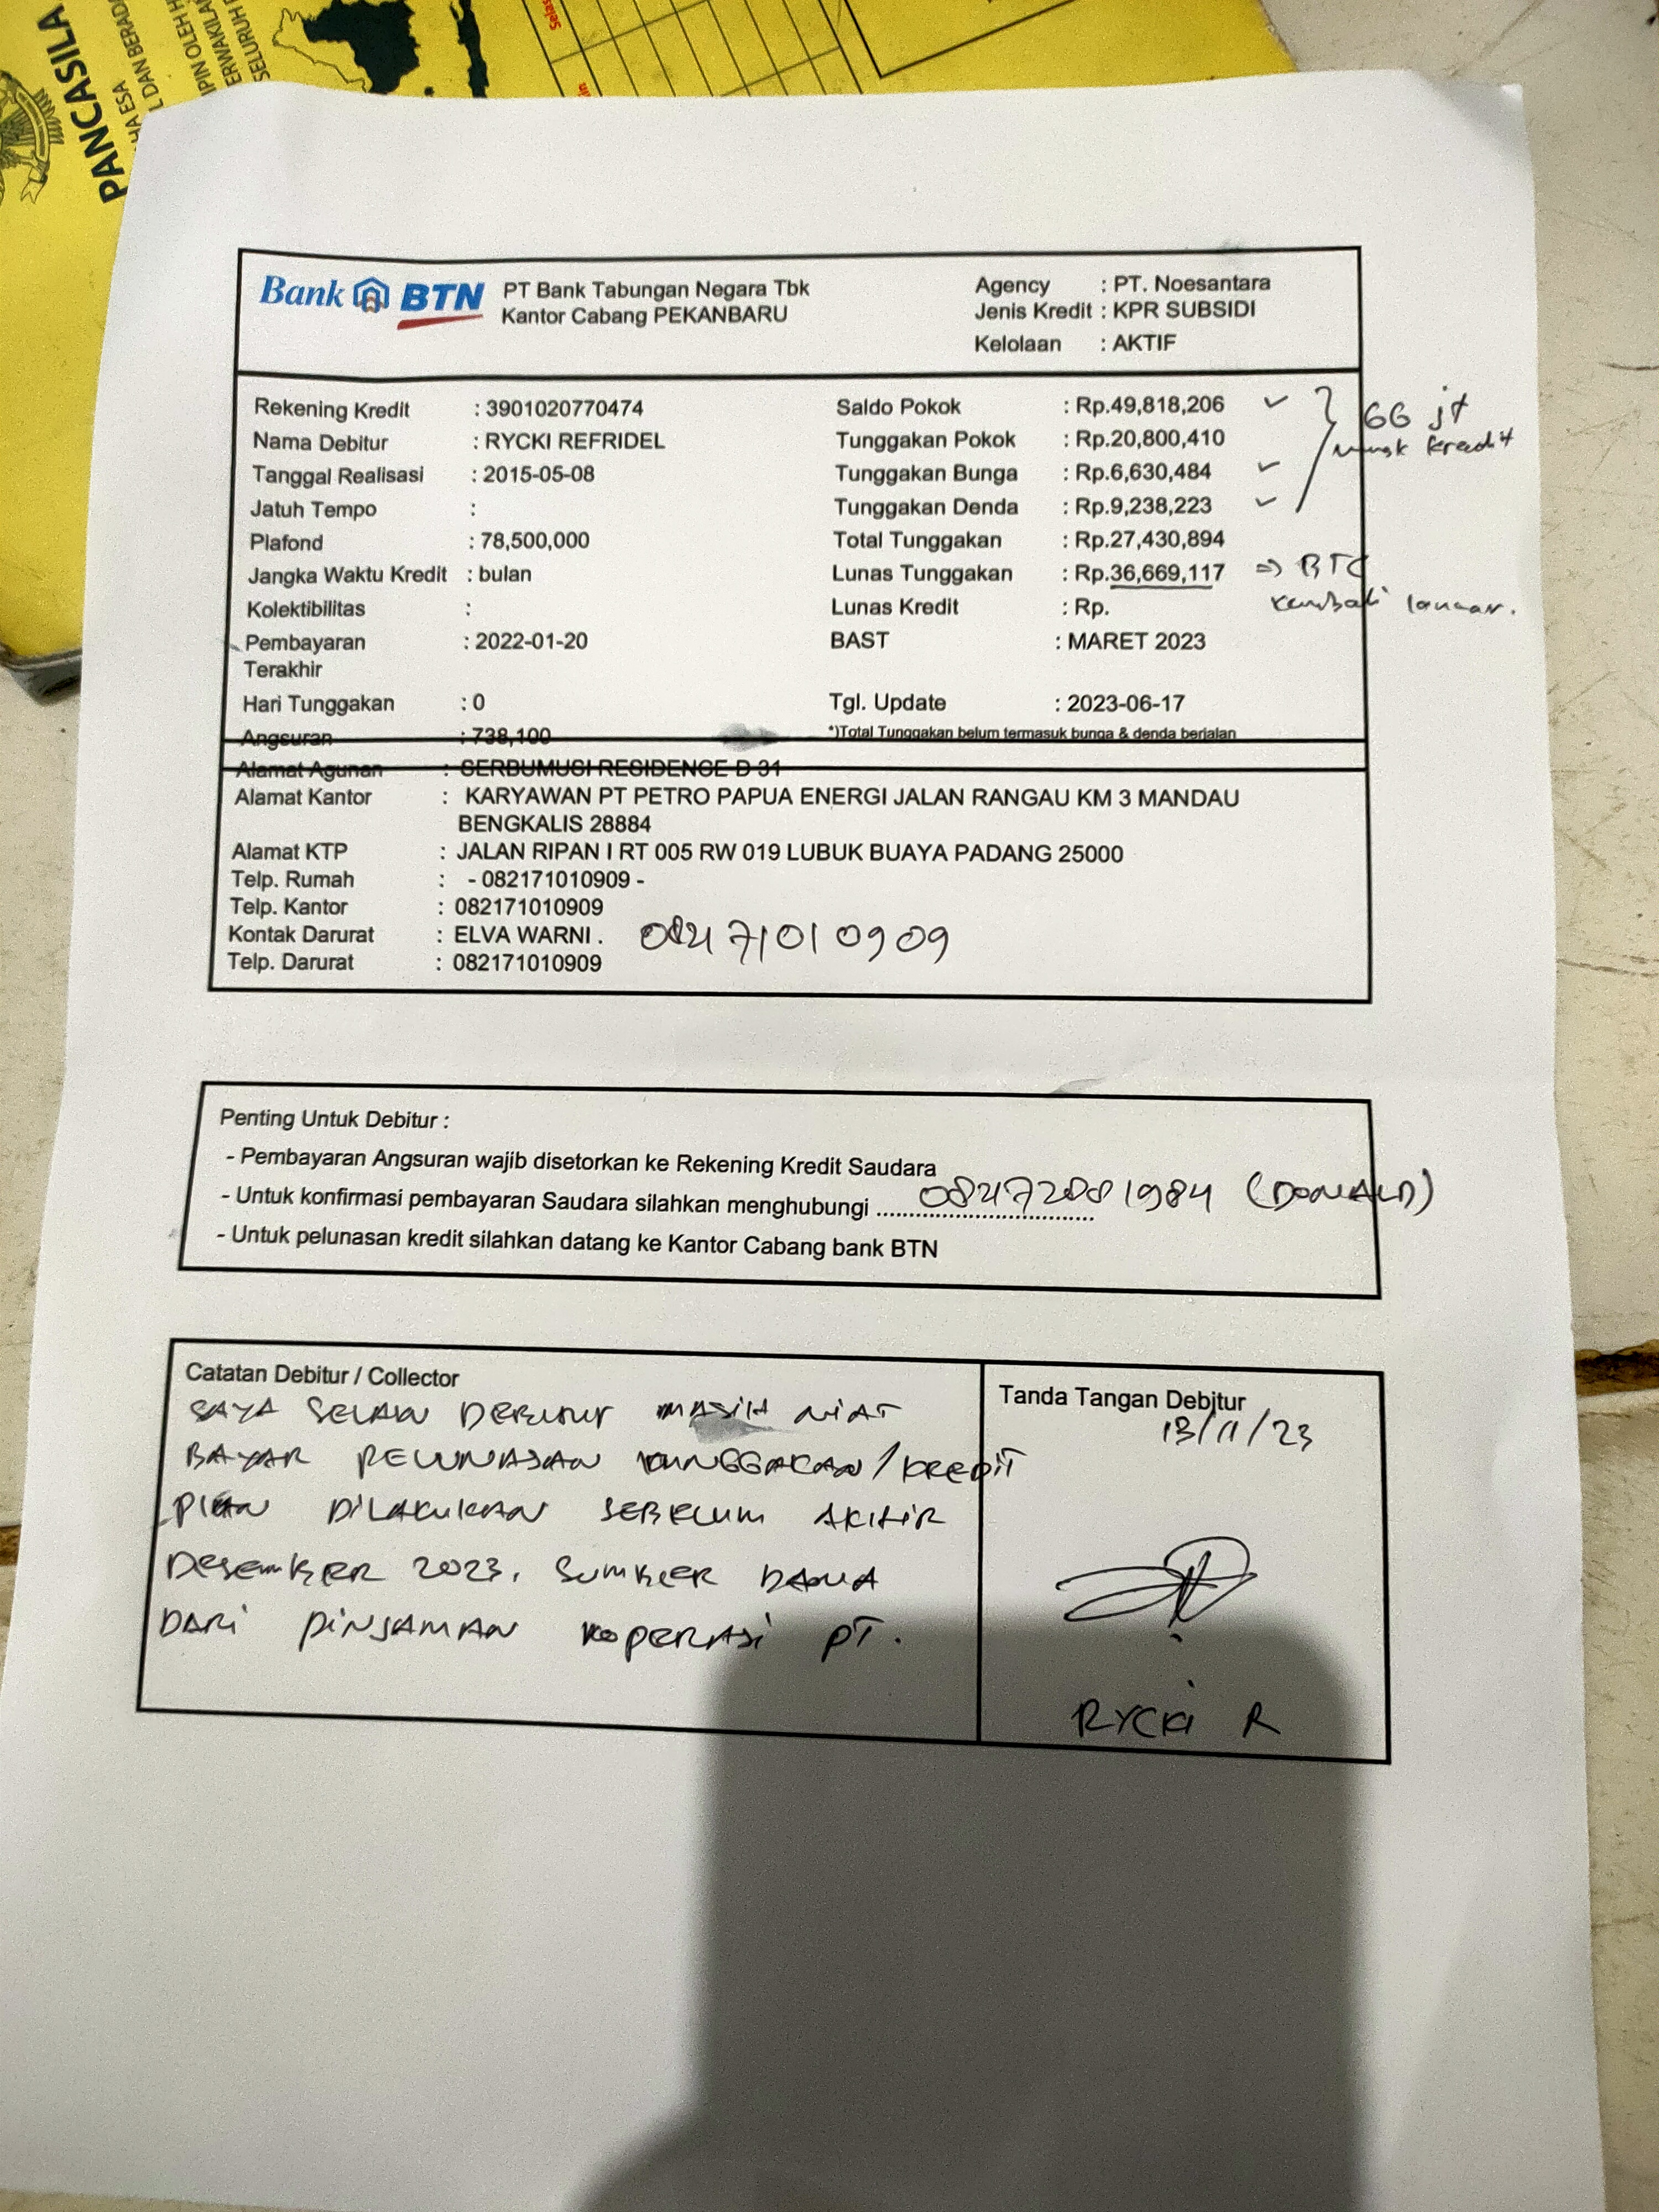 PANCASILA
HA ESA
L DAN BERAD
IPIN OLEH H
ERWAKILA
SELURUH
Selas
Bank BTN
PT Bank Tabungan Negara Tbk
Kantor Cabang PEKANBARU
Agency : PT. Noesantara
Jenis Kredit : KPR SUBSIDI
Kelolaan : AKTIF
Rekening Kredit : 3901020770474
Nama Debitur : RYCKI REFRIDEL
Tanggal Realisasi : 2015-05-08
Jatuh Tempo :
Plafond : 78,500,000
Jangka Waktu Kredit : bulan
Kolektibilitas :
Pembayaran Terakhir : 2022-01-20
Hari Tunggakan : 0
Angsuran : 738,100
Saldo Pokok : Rp.49,818,206
Tunggakan Pokok : Rp.20,800,410
Tunggakan Bunga : Rp.6,630,484
Tunggakan Denda : Rp.9,238,223
Total Tunggakan : Rp.27,430,894
Lunas Tunggakan : Rp.36,669,117
Lunas Kredit : Rp.
BAST : MARET 2023
Tgl. Update : 2023-06-17
*)Total Tunggakan belum termasuk bunga & denda berjalan
66 jt
kredit
⇒ BTC
kembali lancar.
Alamat Agunan : SERBUMUSI RESIDENCE D 31
Alamat Kantor : KARYAWAN PT PETRO PAPUA ENERGI JALAN RANGAU KM 3 MANDAU
BENGKALIS 28884
Alamat KTP : JALAN RIPAN I RT 005 RW 019 LUBUK BUAYA PADANG 25000
Telp. Rumah : - 082171010909 -
Telp. Kantor : 082171010909
Kontak Darurat : ELVA WARNI . 082171010909
Telp. Darurat : 082171010909
Penting Untuk Debitur :
- Pembayaran Angsuran wajib disetorkan ke Rekening Kredit Saudara
- Untuk konfirmasi pembayaran Saudara silahkan menghubungi ........ 082172881984 (DONALD)
- Untuk pelunasan kredit silahkan datang ke Kantor Cabang bank BTN
Catatan Debitur / Collector
SAYA SELAKU DEBITUR MASIH NIAT
BAYAR PELUNASAN TUNGGAKAN / KREDIT
PLAN DILAKUKAN SEBELUM AKHIR
DESEMBER 2023, SUMBER DANA
DARI PINJAMAN KOPERASI PT.
Tanda Tangan Debitur
13/11/23
RYCKI R